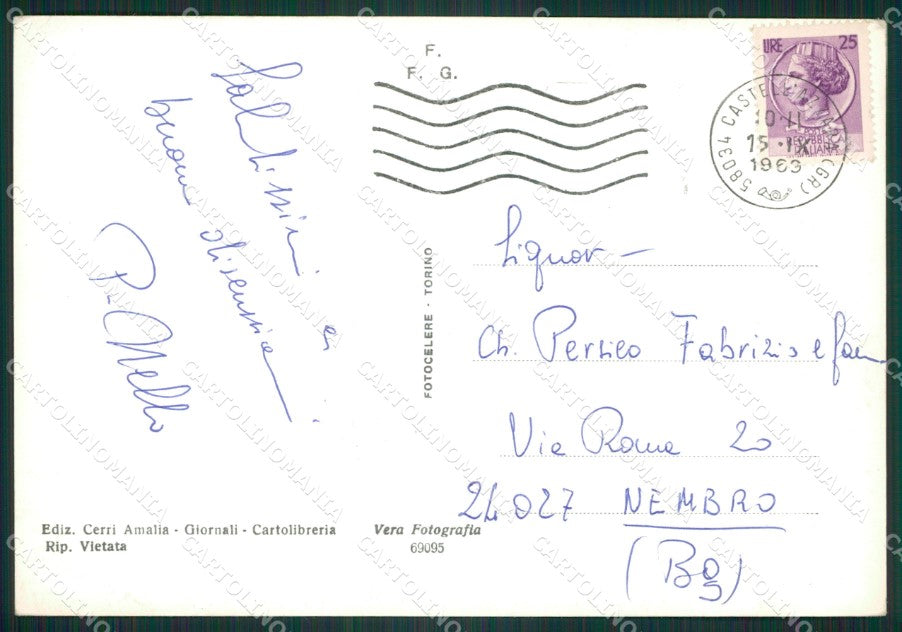 F.
F. G.
LIRE 25
58034 CASTELL'AZZARA (GR)
10-11
15·IX
1969
REPVBBLICA
ITALIANA
buona
P. Nello
FOTOCELERE - TORINO
Ch. Persico Fabrizio e fam
Via Roma 20
24027 NEMBRO
(Bg)
Ediz. Cerri Amalia - Giornali - Cartolibreria
Rip. Vietata
Vera Fotografia
69095
CARTOLINOMANIA